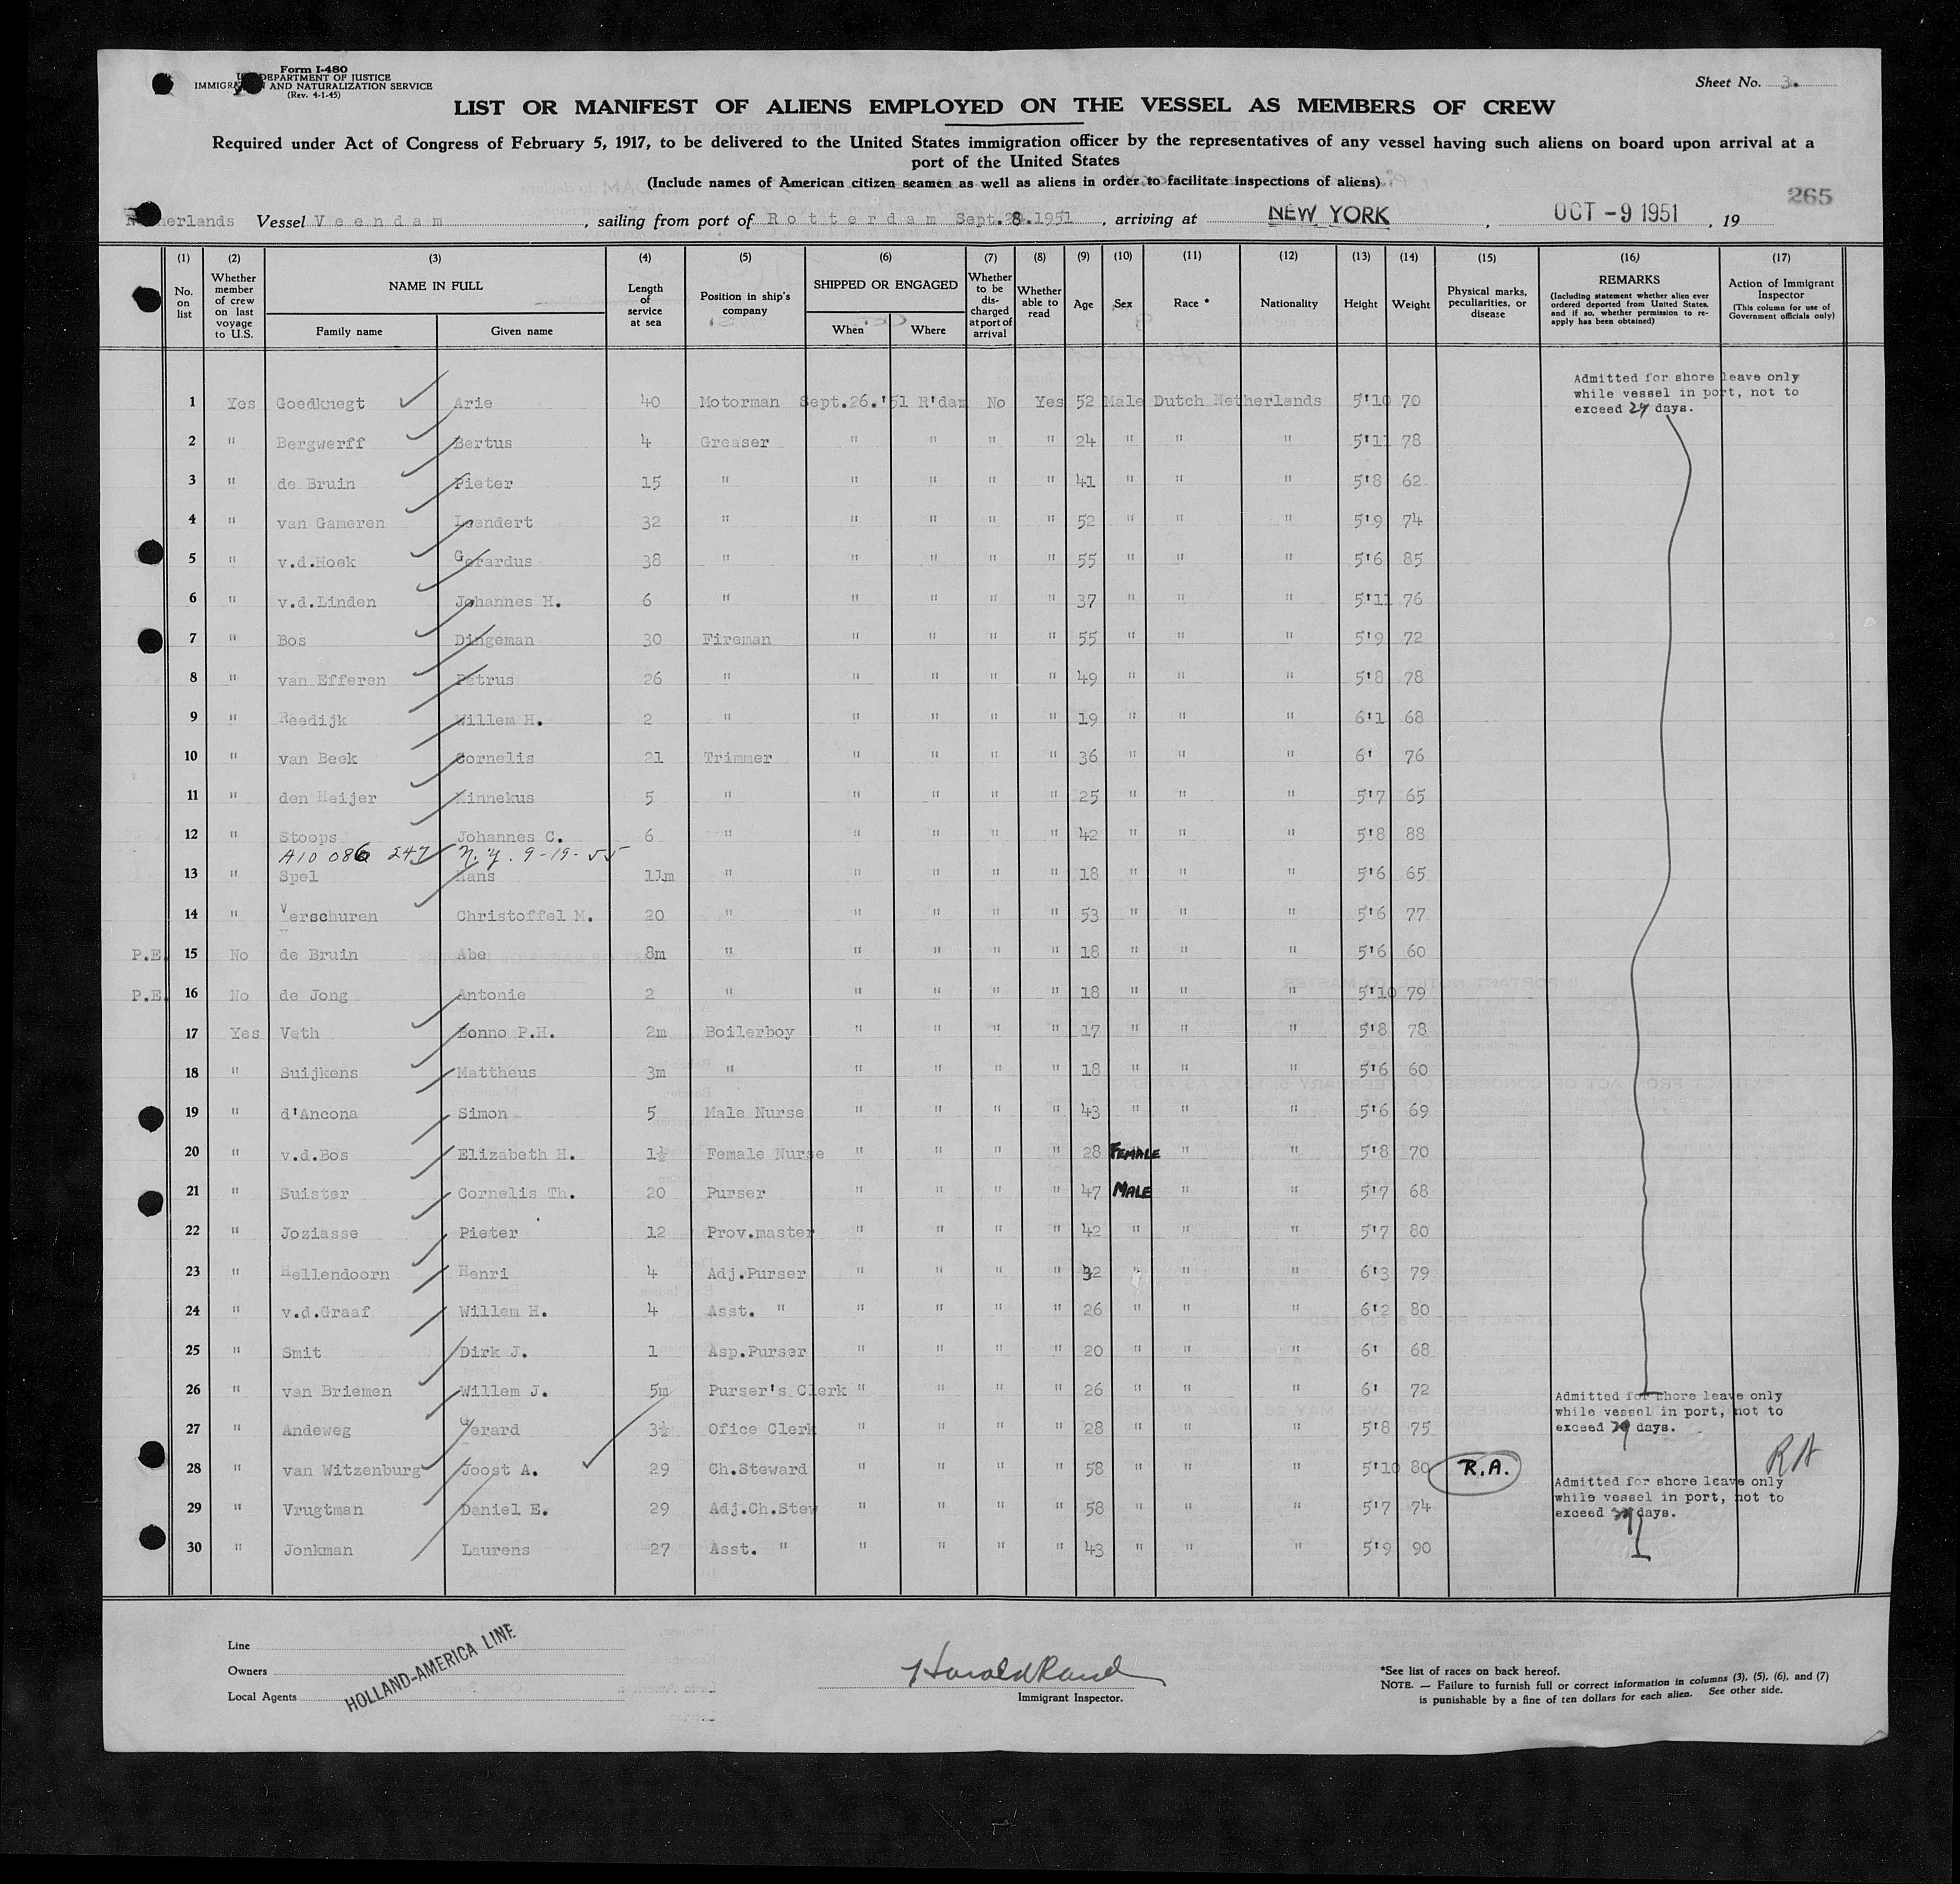 Form I-480
DEPARTMENT OF JUSTICE
IMMIGRATION AND NATURALIZATION SERVICE
(Rev. 4-1-45)
Sheet No. 3.
LIST OR MANIFEST OF ALIENS EMPLOYED ON THE VESSEL AS MEMBERS OF CREW
Required under Act of Congress of February 5, 1917, to be delivered to the United States immigration officer by the representatives of any vessel having such aliens on board upon arrival at a
port of the United States
(Include names of American citizen seamen as well as aliens in order to facilitate inspections of aliens)
265
Netherlands Vessel Veendam, sailing from port of Rotterdam Sept. 1951, arriving at NEW YORK, OCT -9 1951, 19
(1) (2) (3) (4) (5) (6) (7) (8) (9) (10) (11) (12) (13) (14) (15) (16) (17)
No. on list
Whether member of crew on last voyage to U.S.
NAME IN FULL
Family name Given name
Length of service at sea
Position in ship's company
SHIPPED OR ENGAGED
When Where
Whether to be discharged at port of arrival
Whether able to read
Age Sex Race * Nationality Height Weight
Physical marks, peculiarities, or disease
REMARKS
(Including statement whether alien ever ordered deported from United States, and if so, whether permission to re-apply has been obtained)
Action of Immigrant Inspector
(This column for use of Government officials only)
Admitted for shore leave only
while vessel in port, not to
exceed 29 days.
1 Yes Goedknegt Arie 40 Motorman Sept.26.'51 R'dam No Yes 52 Male Dutch Netherlands 5'10 70
2 " Bergwerff Bertus 4 Greaser " " " " 24 " " " 5'11 78
3 " de Bruin Pieter 15 " " " " " 41 " " " 5'8 62
4 " van Gameren Leendert 32 " " " " " 52 " " " 5'9 74
5 " v.d.Hoek Gerardus 38 " " " " " 55 " " " 5'6 85
6 " v.d.Linden Johannes H. 6 " " " " " 37 " " " 5'11 76
7 " Bos Dingeman 30 Fireman " " " " 55 " " " 5'9 72
8 " van Efferen Petrus 26 " " " " " 49 " " " 5'8 78
9 " Reedijk Willem H. 2 " " " " " 19 " " " 6'1 68
10 " van Beek Cornelis 21 Trimmer " " " " 36 " " " 6' 76
11 " den Heijer Minnekus 5 " " " " " 25 " " " 5'7 65
12 " Stoops Johannes C. 6 " " " " " 42 " " " 5'8 88
A10 086 247 N.Y. 9-19-55
13 " Spel Hans 11m " " " " " 18 " " " 5'6 65
14 " Verschuren Christoffel M. 20 " " " " " 53 " " " 5'6 77
P.E. 15 No de Bruin Abe 8m " " " " " 18 " " " 5'6 60
P.E. 16 No de Jong Antonie 2 " " " " " 18 " " " 5'10 79
17 Yes Veth Bonno P.H. 2m Boilerboy " " " " 17 " " " 5'8 78
18 " Suijkens Mattheus 3m " " " " " 18 " " " 5'6 60
19 " d'Ancona Simon 5 Male Nurse " " " " 43 " " " 5'6 69
20 " v.d.Bos Elizabeth H. 1½ Female Nurse " " " " 28 FEMALE " " 5'8 70
21 " Suister Cornelis Th. 20 Purser " " " " 47 MALE " " 5'7 68
22 " Joziasse Pieter 12 Prov.master " " " " 42 " " " 5'7 80
23 " Hellendoorn Henri 4 Adj.Purser " " " " 32 " " " 6'3 79
24 " v.d.Graaf Willem H. 4 Asst. " " " " " 26 " " " 6'2 80
25 " Smit Dirk J. 1 Asp.Purser " " " " 20 " " " 6' 68
26 " van Briemen Willem J. 5m Purser's Clerk " " " " 26 " " " 6' 72
Admitted for shore leave only
while vessel in port, not to
exceed 29 days.
27 " Andeweg Gerard 3½ Ofice Clerk " " " " 28 " " " 5'8 75
28 " van Witzenburg Joost A. 29 Ch.Steward " " " " 58 " " " 5'10 80 R.A. RA
Admitted for shore leave only
while vessel in port, not to
exceed 29 days.
29 " Vrugtman Daniel E. 29 Adj.Ch.Stew " " " " 58 " " " 5'7 74
30 " Jonkman Laurens 27 Asst. " " " " " 43 " " " 5'9 90
Line
Owners
Local Agents
HOLLAND-AMERICA LINE
Harold Rand
Immigrant Inspector.
*See list of races on back hereof.
NOTE. — Failure to furnish full or correct information in columns (3), (5), (6), and (7)
is punishable by a fine of ten dollars for each alien. See other side.